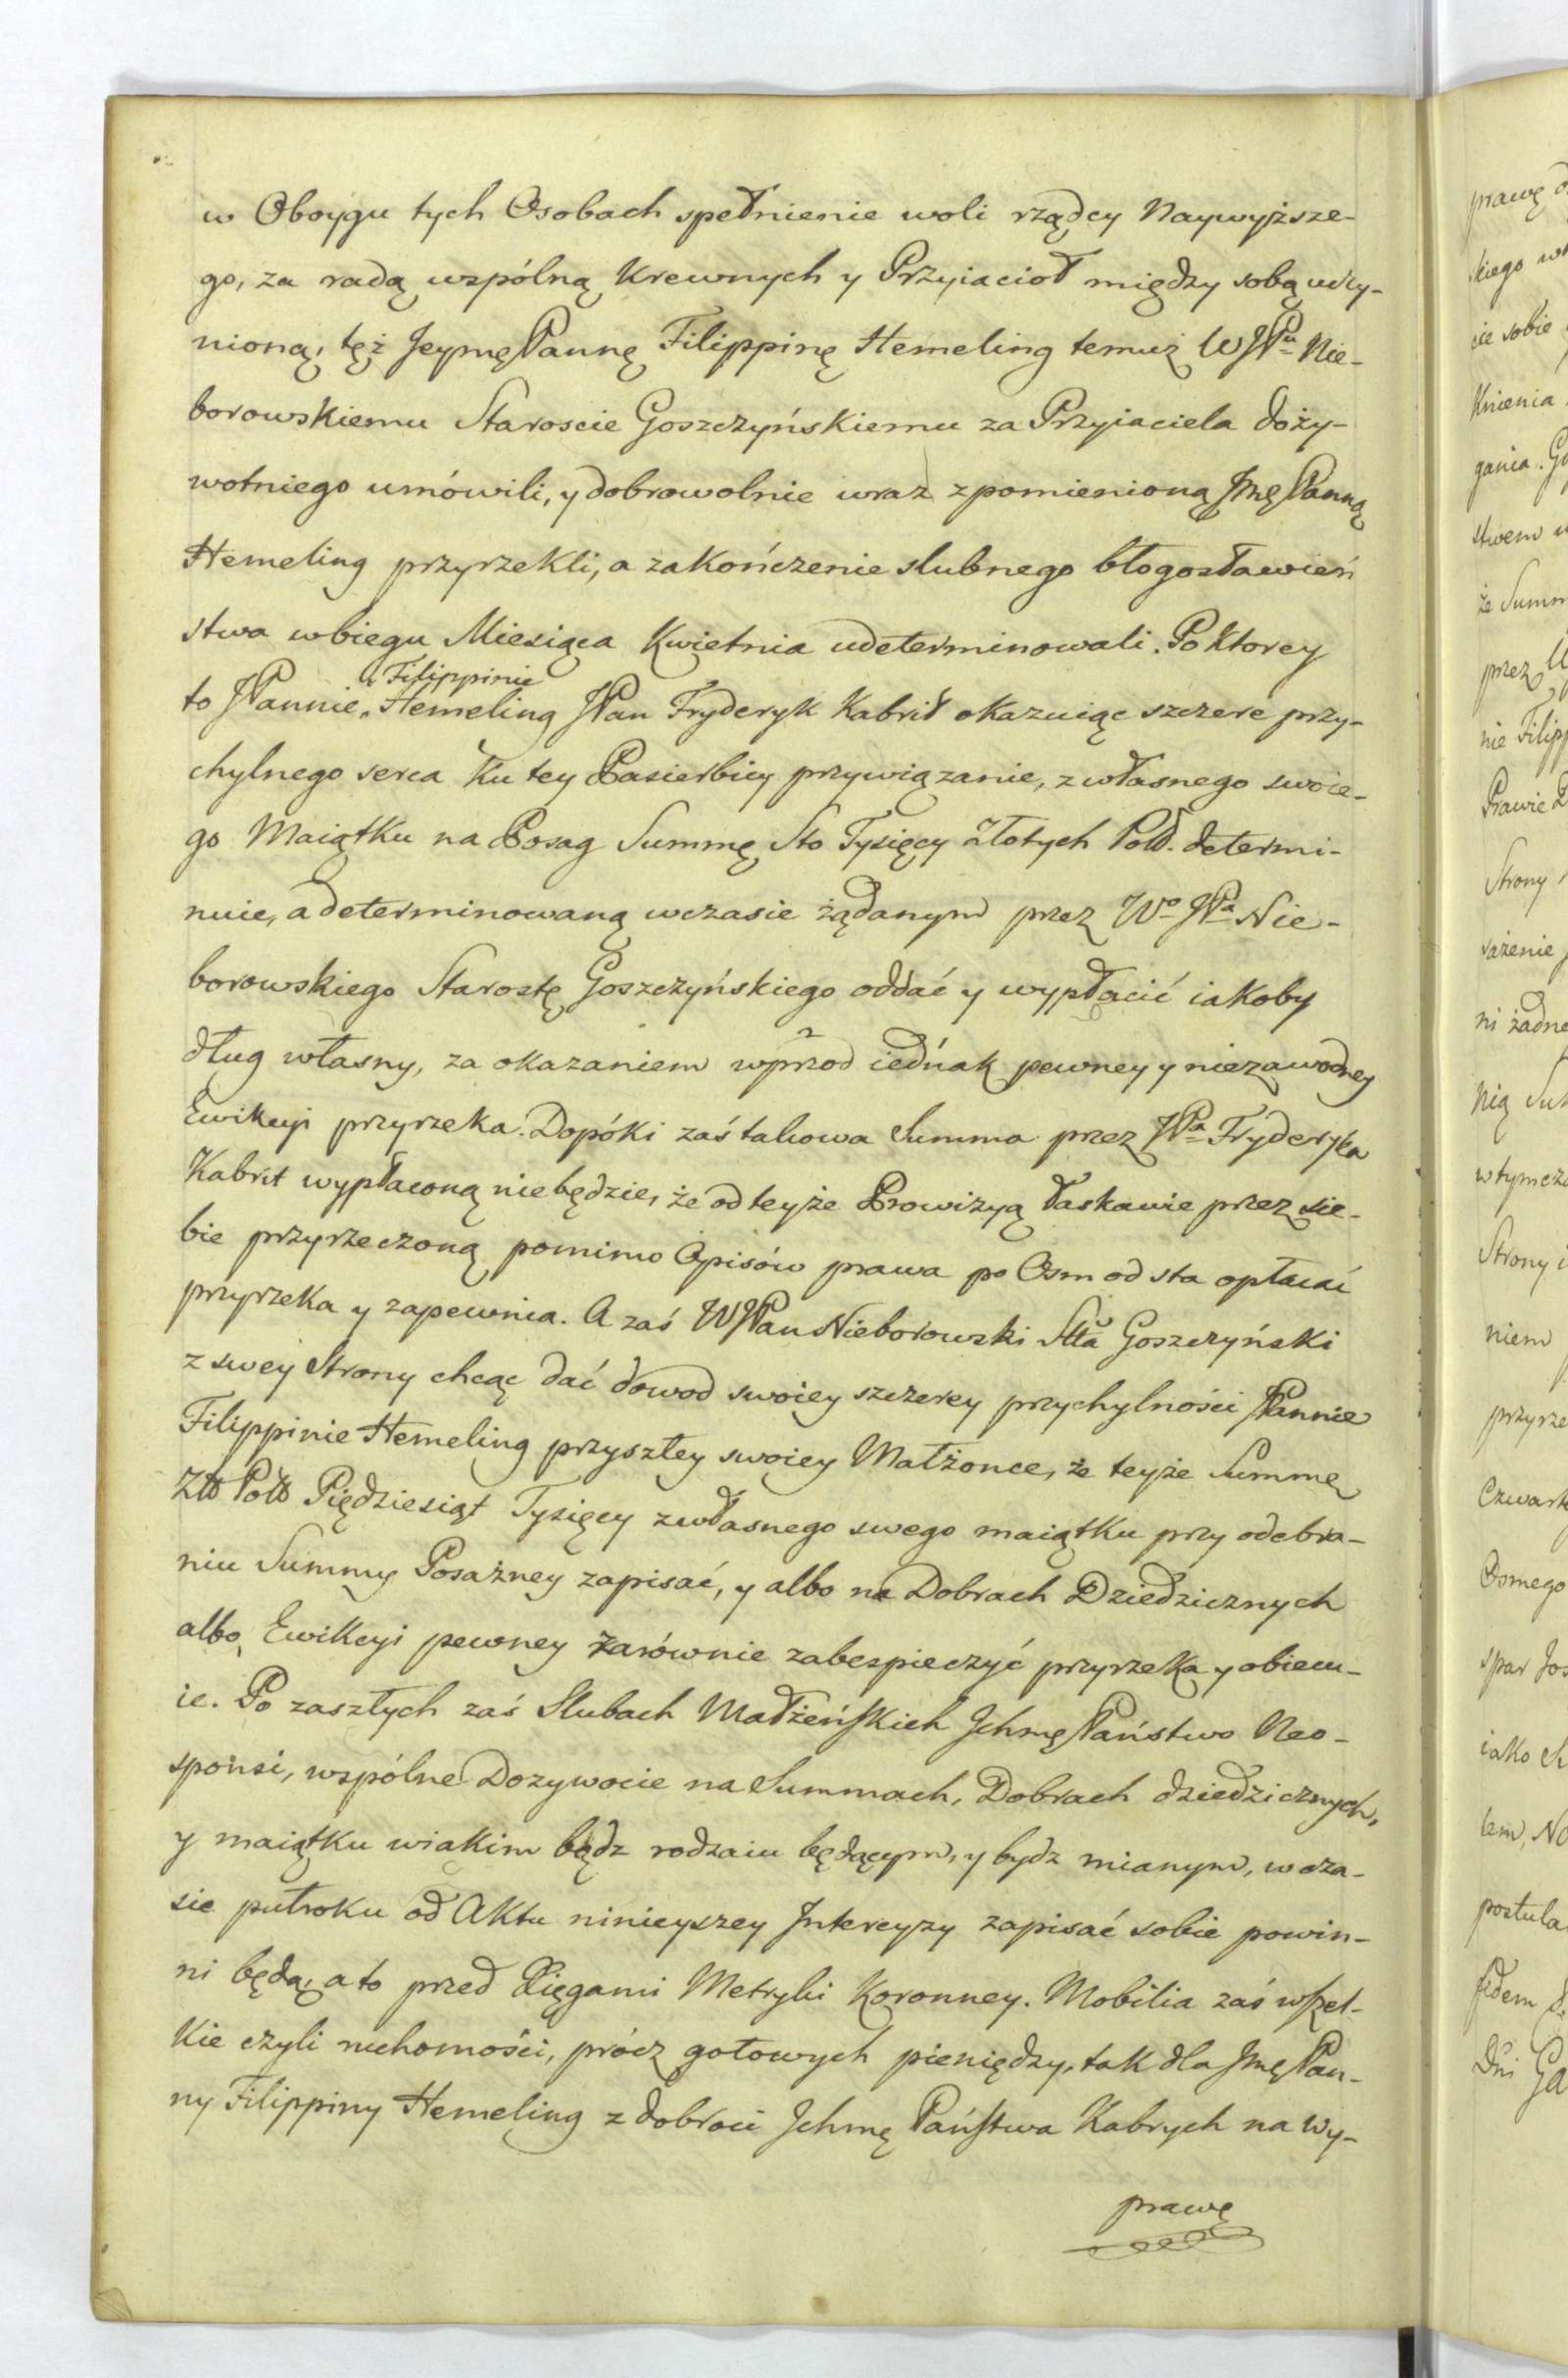 w Oboygu tych Osobach spełnienie woli rządcy Naywyższe-
go, za radą wspólną Krewnych y Przyiacioł między sobą uczy-
nioną, też Jeymę Pannę Filippinę Hemeling temuż WJPu Nie-
borowskiemu Staroscie Goszczyńskiemu za Przyiaciela doży-
wotniego umówili, y dobrowolnie wraz z pomienioną Jmę Panną
Hemeling przyrzekli, a zakończenie slubnego błogosławień
stwa w biegu Miesiąca Kwietnia udeterminowali. Po Ktorey
to JPannie Filippinie Hemeling JPan Fryderyk Kabrit okazuiąc szczere przy-
chylnego serca Ku tey Pasierbicy przywiązanie, z własnego swoie-
go Maiątku na Posag Summę Sto Tysięcy Złotych Pold. determi-
nuie, a determinowaną w czasie żądanym przez Wo JPa Nie-
borowskiego Starostę Goszczyńskiego oddać y wypłacić iakoby
dług własny, za okazaniem wprzod iednak pewney y niezawodney
Ewikcyi przyrzeka. Dopóki zaś takowa Summa przez JPa Fryderyka
Kabrit wypłaconą niebędzie, że od teyże Prowizyą łaskawie przez sie-
bie przyrzeczoną pomimo Opisów prawa po Osm od sta opłacać
przyrzeka y zapewnia. A zaś WJPan Nieborowski Stta Goszczyński
z swey Strony chcąc dać dowod swoiey szczerey przychylności JPannie
Filippinie Hemeling przyszłey swoiey Małżonce, że teyże Summę
Złł Poll Pięđziesiąt Tysięcy z własnego swego maiątku przy odebra-
niu Summy Posażney zapisać, y albo na Dobrach Dziedzicznych
albo Ewikcyi pewney zarównie zabezpieczyć przyrzeka y obiecu-
ie. Po zaszłych zaś Slubach Małżeńskich Jchmę Państwo Neo-
sponsi, wspólne Dozywocie na Summach, Dobrach dziedzicznych,
y maiątku wiakim bądz rodzaiu będącym, y bydz mianym, w cza-
sie pułroku od Aktu ninieyszey Jntercyzy zapisać sobie powin-
ni będą, a to przed Xięgami Metryki Koronney. Mobilia zaś wszel-
Kie czyli ruchomości, prócz gotowych pieniędzy, tak dla Jmę Pan-
ny Filippiny Hemeling z dobroci Jchmę Państwa Kabrych na wy-
prawę